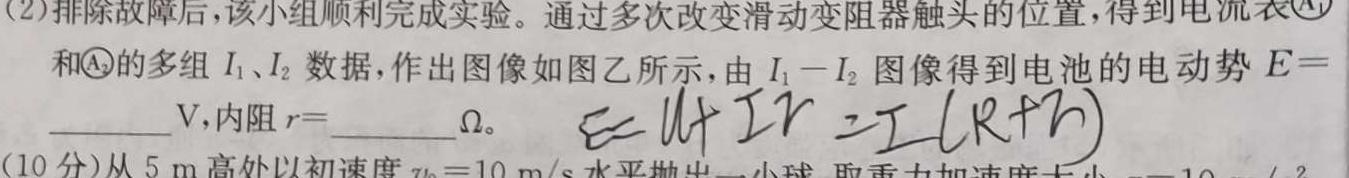 (2)排除故障后,该小组顺利完成实验。通过多次改变滑动变阻器触头的位置,得到电流表Ⓐ₁
和Ⓐ₂的多组 I₁、I₂ 数据,作出图像如图乙所示,由 I₁－I₂ 图像得到电池的电动势 E＝
________V,内阻 r＝________Ω。 E=U+Ir=I(R+r)
(10 分)从 5 m 高处以初速度 v₀＝10 m/s 水平抛出一小球,取重力加速度大小